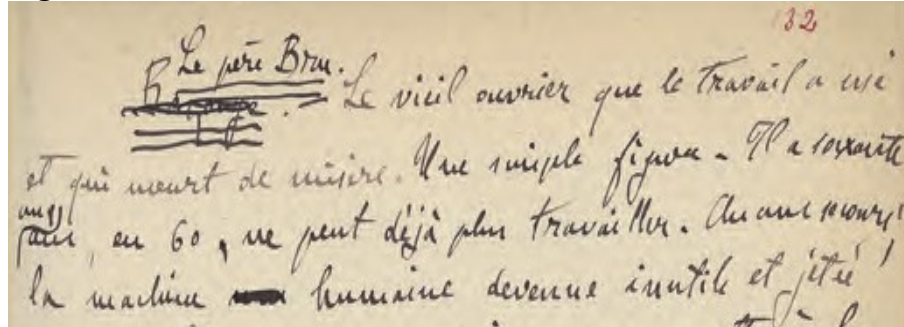 32
Le père Bru.
Le vieil ouvrier que le travail a usé
et qui meurt de misère. Une simple figure. Il a soixante
ans, en 60, ne peut déjà plus travailler. Aucun secours!
la machine humaine devenue inutile et jetée